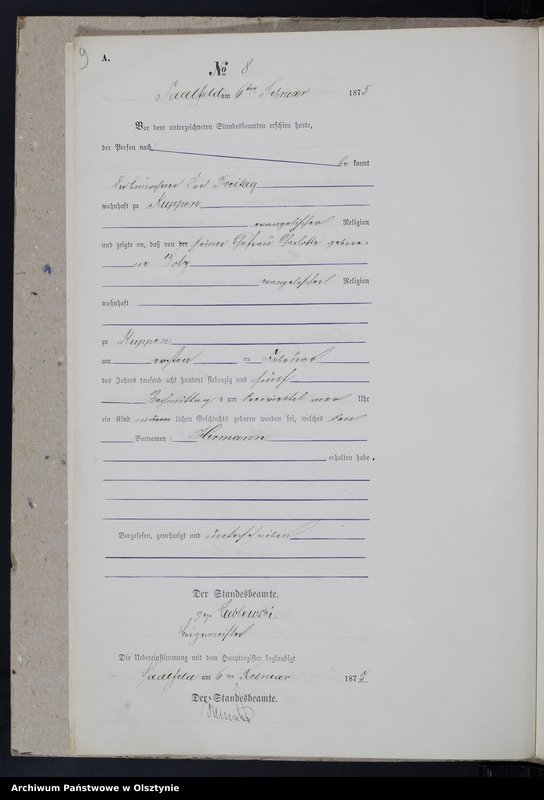 9
A.
No 8
Saalfeld am 6ten Februar 1875
Vor dem unterzeichneten Standesbeamten erschien heute,
der Person nach
be kannt
der Einwohner Carl Freitag
wohnhaft zu Kuppen
evangelischer Religion
und zeigte an, daß von der seiner Ehefrau Charlotte gebore-
ne
evangelischer Religion
wohnhaft
zu Kuppen
am ersten ten Februar
des Jahres tausend acht hundert siebenzig und fünf
Nachmittag s um dreiviertel vier Uhr
ein Kind männ lichen Geschlechts geboren worden sei, welches den
Vornamen: Hermann
erhalten habe.
Vorgelesen, genehmigt und unterschrieben
Der Standesbeamte.
gez. Lublewski
Bürgermeister
Die Uebereinstimmung mit dem Hauptregister beglaubigt
Saalfeld am 6 ten Februar 1875
Der Standesbeamte.
Archiwum Państwowe w Olsztynie